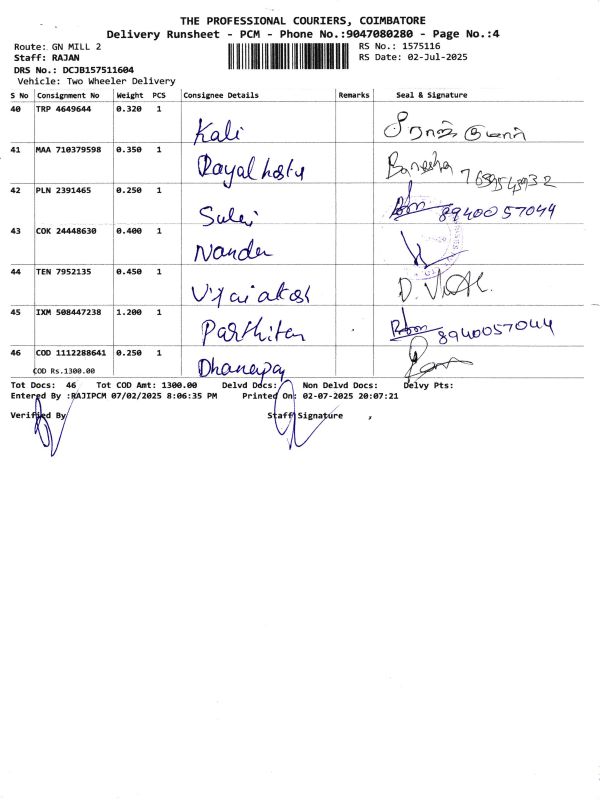 THE PROFESSIONAL COURIERS, COIMBATORE
Delivery Runsheet - PCM - Phone No.:9047080280 - Page No.:4
Route: GN MILL 2
RS No.: 1575116
Staff: RAJAN
RS Date: 02-Jul-2025
DRS No.: DCJB157511604
Vehicle: Two Wheeler Delivery
S No Consignment No Weight PCS Consignee Details Remarks Seal & Signature
40 TRP 4649644 0.320 1 Kali
41 MAA 710379598 0.350 1 Rayal
42 PLN 2391465 0.250 1 8940057044
43 COK 24448630 0.400 1
44 TEN 7952135 0.450 1
45 IXM 508447238 1.200 1 8940057044
46 COD 1112288641 0.250 1
COD Rs.1300.00
Tot Docs: 46 Tot COD Amt: 1300.00 Delvd Docs: Non Delvd Docs: Delvy Pts:
Entered By :RAJIPCM 07/02/2025 8:06:35 PM Printed On: 02-07-2025 20:07:21
Verified By Staff Signature ,